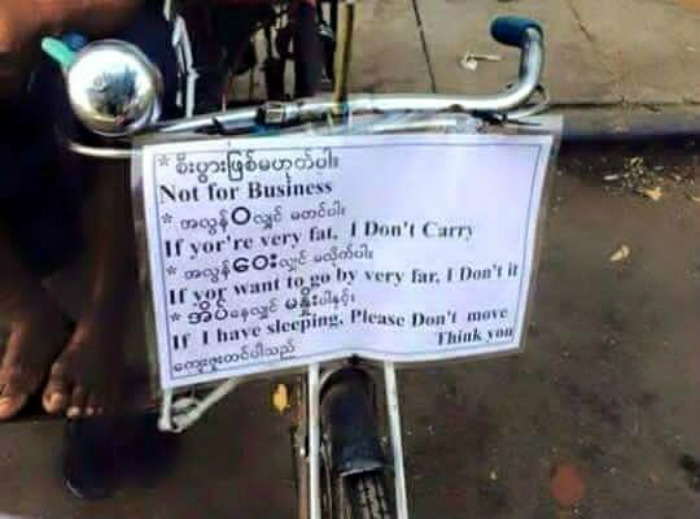 * စီးပွားဖြစ်မဟုတ်ပါ။
Not for Business
* အလွန်ဝလျှင် မတင်ပါ။
If yor're very fat, I Don't Carry
* အလွန်ဝေးလျှင် မလိုက်ပါ။
If yor want to go by very far, I Don't it
* အိပ်နေလျှင် မနှိုးပါနှင့်။
If I have sleeping, Please Don't move
Think you
ကျေးဇူးတင်ပါသည်